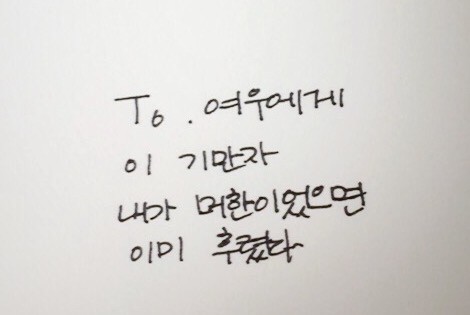 To. 여우에게
이 기만자
내가 머한이었으면
이미 후렸다